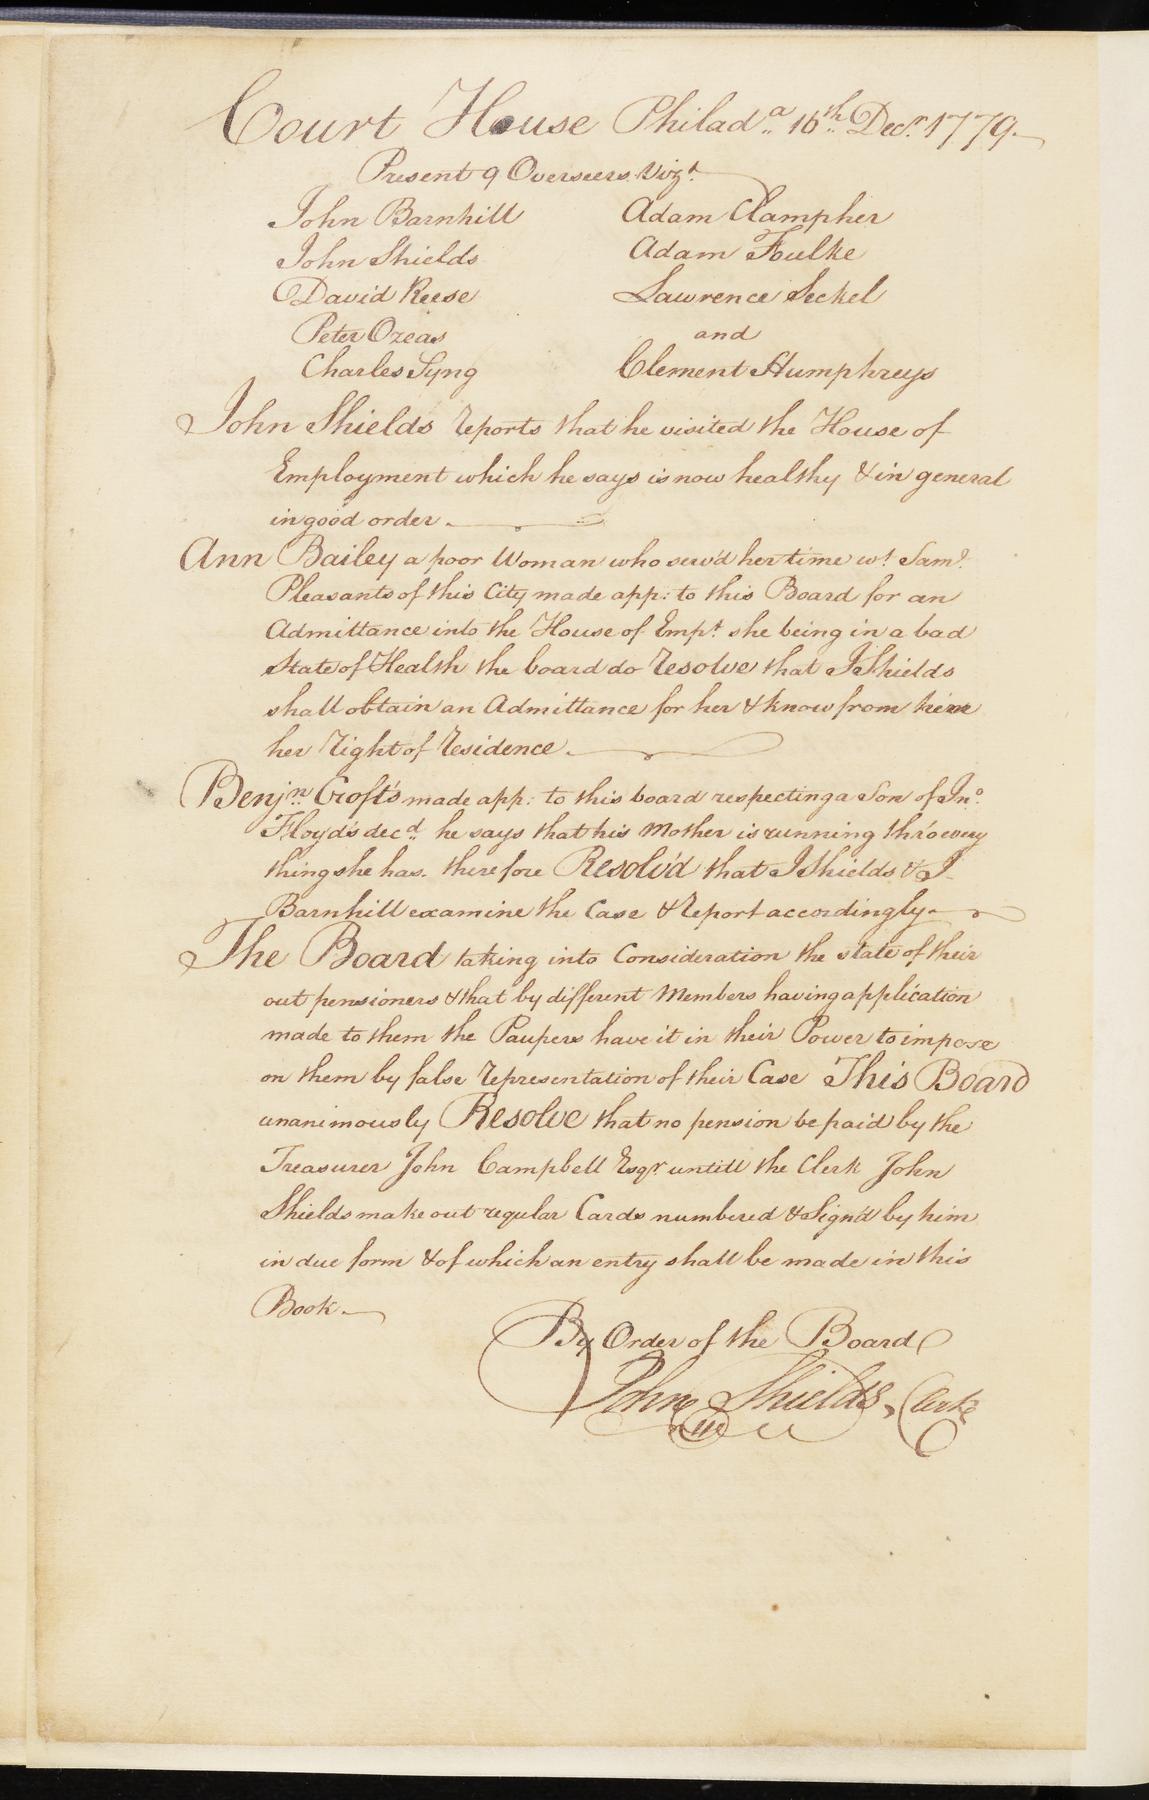 Court House Philad.a 16th Decr. 1779.
Present 9 Overseers Vizt.
John Barnhill
John Shields
David Reese
Peter Ozeas
Charles Syng
Adam Clampher
Adam Foulke
Lawrence Seckel
and
Clement Humphreys
John Shields reports that he visited the House of
Employment which he says is now healthy & in general
in good order.
Ann Bailey a poor Woman who serv'd her time wt. Saml.
Pleasants of this City made app: to this Board for an
Admittance into the House of Empt. she being in a bad
State of Health the board do resolve that J Shields
shall obtain an Admittance for her & know from him
her right of residence.
Benjn. Croft's made app: to this board respecting a Son of Jno.
Floyd's decd. he says that his Mother is running thro every
thing she has. therefore Resolv'd that J Shields & J
Barnhill examine the Case & report accordingly.
The Board taking into Consideration the state of their
out pensioners & that by different Members having application
made to them the Paupers have it in their Power to impose
on them by false representation of their Case This Board
unanimously Resolve that no pension be paid by the
Treasurer John Campbell Esqr. untill the Clerk John
Shields make out regular Cards numbered & Sign'd by him
in due form & of which an entry shall be made in this
Book.
By Order of the Board
John Shields, Clerk